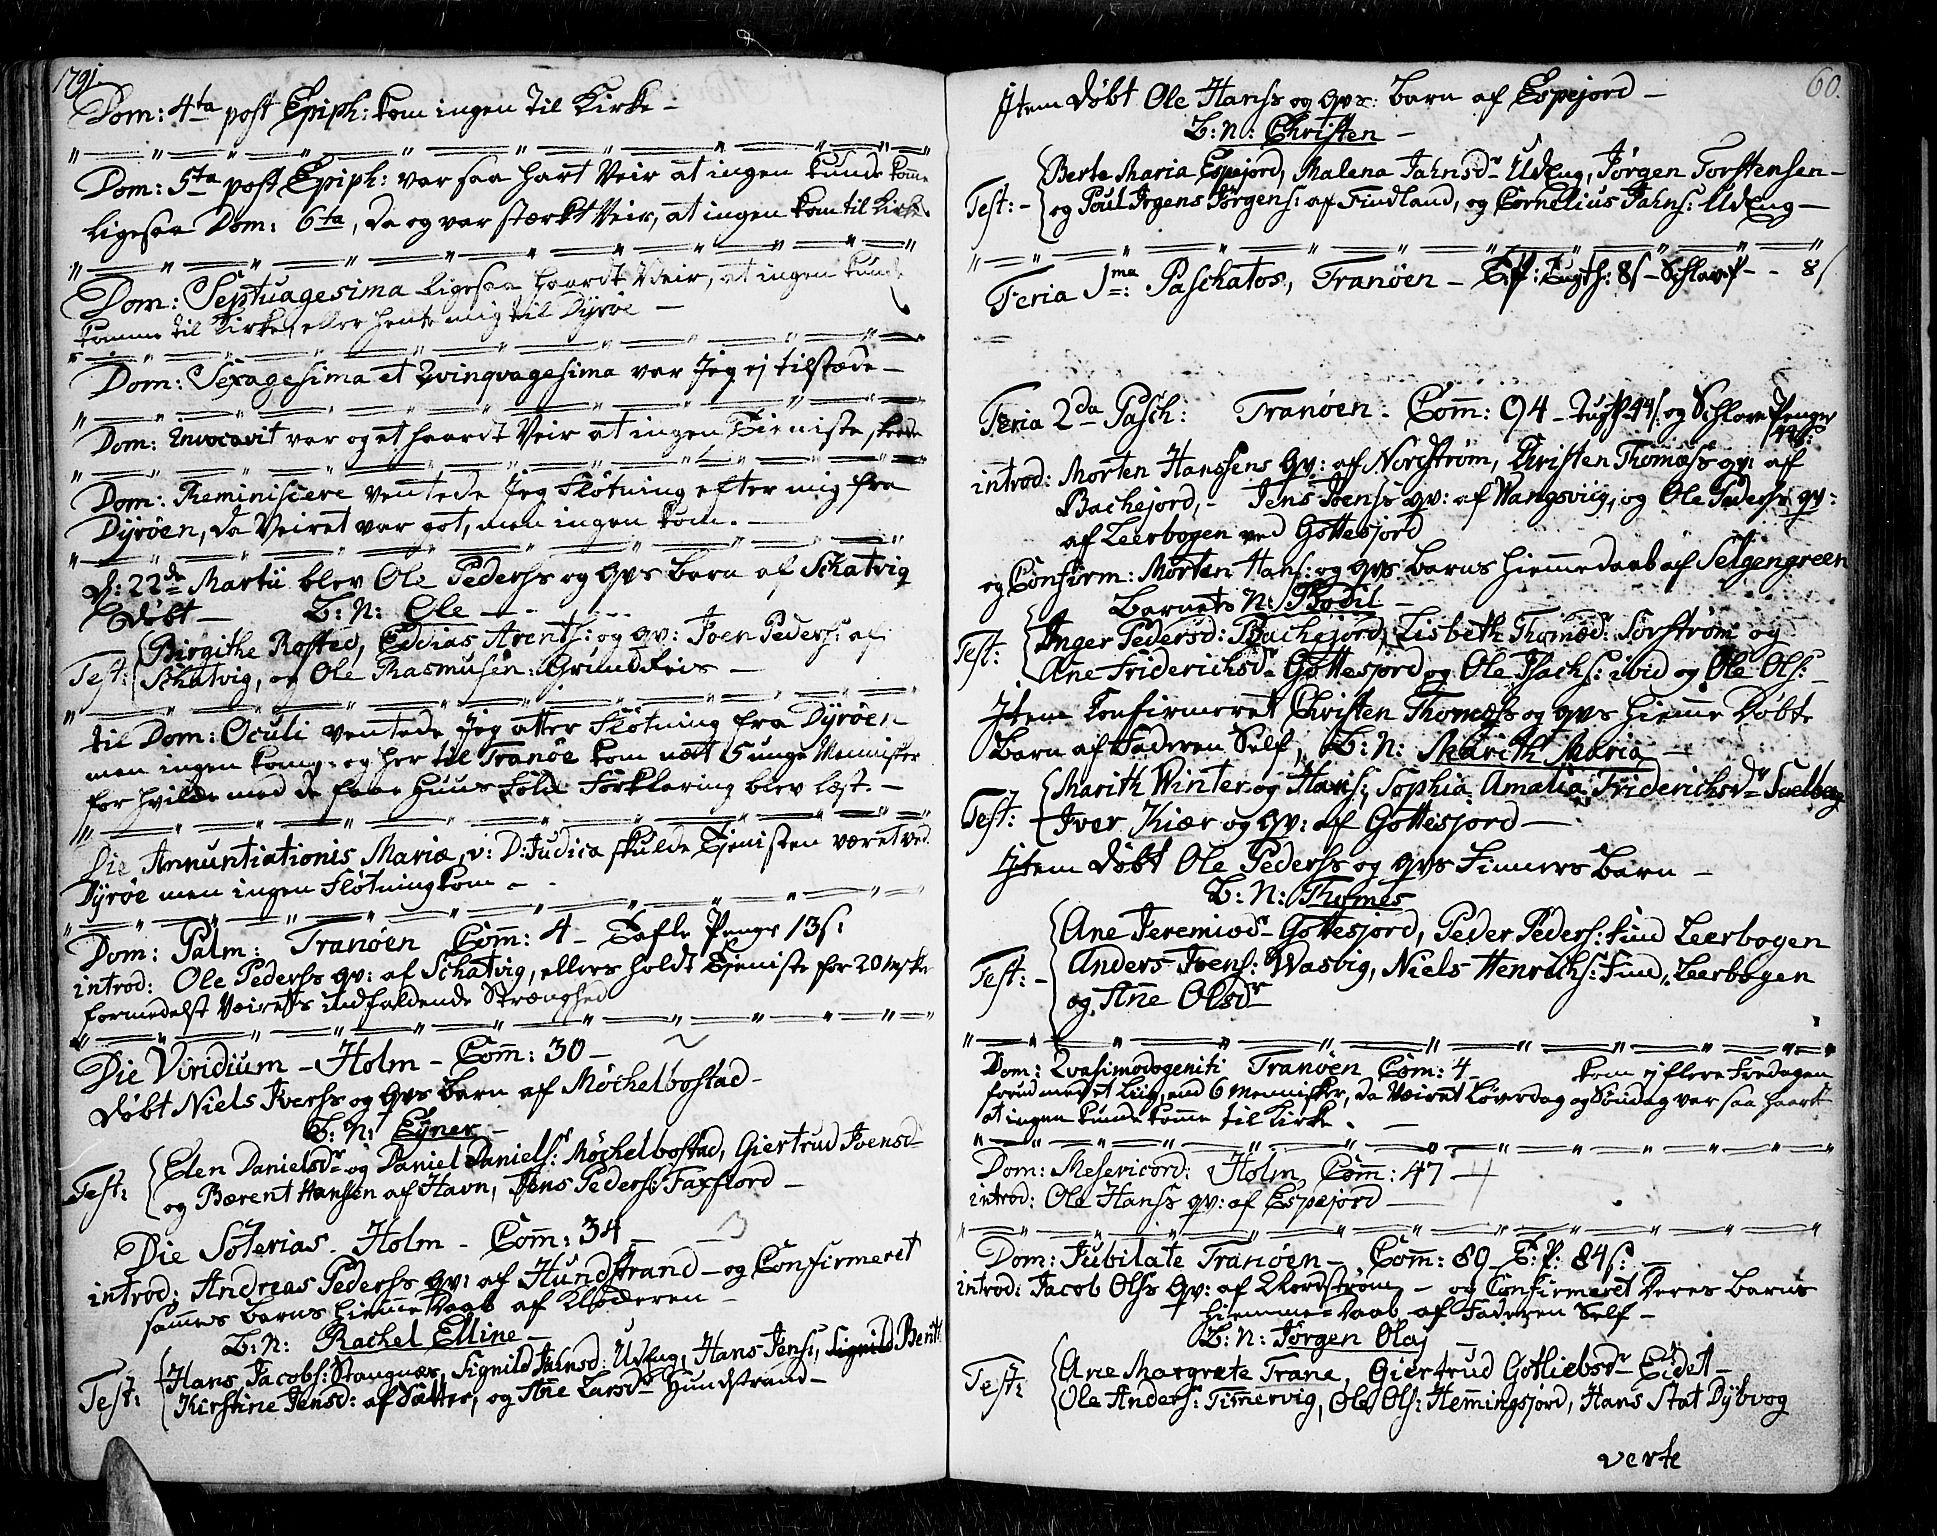 1791
Dom: 4ta post Epiph: kom ingen til Kirke –
Dom: 5ta post Epiph: var saa hart Veir at ingen kunde komme
ligesaa Dom: 6ta, da og var stærkt Veir, at ingen kom til Kirke
Dom: Septuagesima ligesaa haardt Veir, at ingen kunde
komme til Kirke, eller hente mig til Dyrøe –
Dom: Sexagesima et Qvinqvagesima var Jeg ej tilstæde –
Dom: Invocavit var og et haardt Veir at ingen Tieniste skede
Dom: Reminiscere ventede Jeg Fløtning efter mig fra
Dyrøen, da Veiret var got, men ingen kom. –
D: 22de Martii blev Ole Pederss og qvs Barn af Schatvig
Døbt – B: N: Ole –
Test: Birgithe Rosted, Edias Arents: og qv: Joen Peders: af
Schatvig, og Ole Rasmusen: Grundreis –
til Dom: Oculi ventede Jeg atter Fløtning fra Dyrøen
men ingen kom; og her til Tranøe kom næt 5 unge Mennisker
for hvilde med de faae Huus Folk Forklaring blev læst. –
Die Annuntiationis Mariæ, v: D: Judica skulde Tjenisten været ved
Dyrøe men ingen Fløtning kom –
Dom: Palm: Tranøen Com̄: 4 – Tafle Penge 13 s:
introd: Ole Pederss qv: af Schatvig, ellers holdt Tjeniste for 20 Msker
formedelst Veirets indfaldende Strænghed
Die Viridium – Holm – Com̄: 30 –
Døbt Niels Iverss og qvs Barn af Møchelbostad –
B: N: Eyner –
Test: Elen Danielsdr og Daniel Daniels: Møchelbostad, Giertrud Joensd
og Bærent Hanssen af Havn, Jens Peders: Faxfiord –
Die Soterias – Holm – Com̄: 34 –
introd: Andreas Pederss qv: af Hundstrand – og Confirmeret
sammes barns hiemme Daab af Klockeren –
B: N: Rachel Elline –
Test: Hans Jacobs: Stangnæs, Signild Jahnsd: UdEng, Hans Jens:, Signild Berit
Kirstine Jensd: af Sætter, og Ane Larsdr Hundstrand –
60.
Item døbt Ole Hanss og qvs: Barn af Espejord –
B: N: Christen –
Test: – Berte Maria Espejord, Malena Jahnsdr UdEng, Jørgen Torstensen –
og Poul Jrgens Jørgens: af Findland, og Cornelius Jahns: UdEng –
Feria 1ma: Paschatos, Tranøen – T: P: 8 s – Schlavs – – 8 s
Feria 2da Pasch: Tranøen – Com̄: 94 – 44 s: og Schlave Penge
44 s:
introd: Morten Hanssens qv: af Nordstrøm, Christen Thomæss qv: af
Bachejord, – Jens Joenss qv: af Vangsviig, og Ole Pederss qv:
af Leerbogen ved Gottesjord
og Confirm: Morten Hans: og qvs Barns hiemmedaab af Selgengreen
Barnets N: Bodil –
Test: Inger Pedersd: Bachejord, Lisbeth Thomæd: Sørstrøm og
Ane Friderichsdr Gottesjord og Ole Isachs: ibid og Ole Ols: –
Item Confirmeret Christen Thomæss og qvs hiemme Døbte
Barn af Faderen Self, B: N: Marith Maria –
Test: Marith Winter og Hans:, Sophia Amalia Friderichsdr Soelberg
Iver Kiær og qv: af Gottesjord –
Item døbt Ole Pederss og qvs Finners Barn –
B: N: Thomes
Test: – Ane Jeremiædr Gottesjord, Peder Peders: Find Leerbogen
Anders Joens: Wasvig, Niels Henrichs: Find, Leerbogen
og Ane Olsdr
Dom: Qvasimodogeniti Tranøen Com̄: 4 – kom ej flere Fredagen
forud med et Liig, end 6 Mennisker, da Veiret Løverdag og Søndag var saa haart
at ingen kunde komme til Kirke. –
Dom: Mesericord: Holm, Com̄: 47 –
introd: Ole Hanss qv: af Espejord –
Dom: Jubilate Tranøen – Com̄: 89 T: P: 84 s: –
introd: Jacob Olss qv: af Nordstrøm – og Confirmeret Deres Barns
hiemme-Daab af Faderen Self –
B: N: Jørgen Olaj –
Test: Ane Margrete Trane, Giertrud Gotliebsdr Eidet –
Ole Anders: Timmervig, Ole Ols: Hemmingsjord, Hans Stat Dybvog
verte